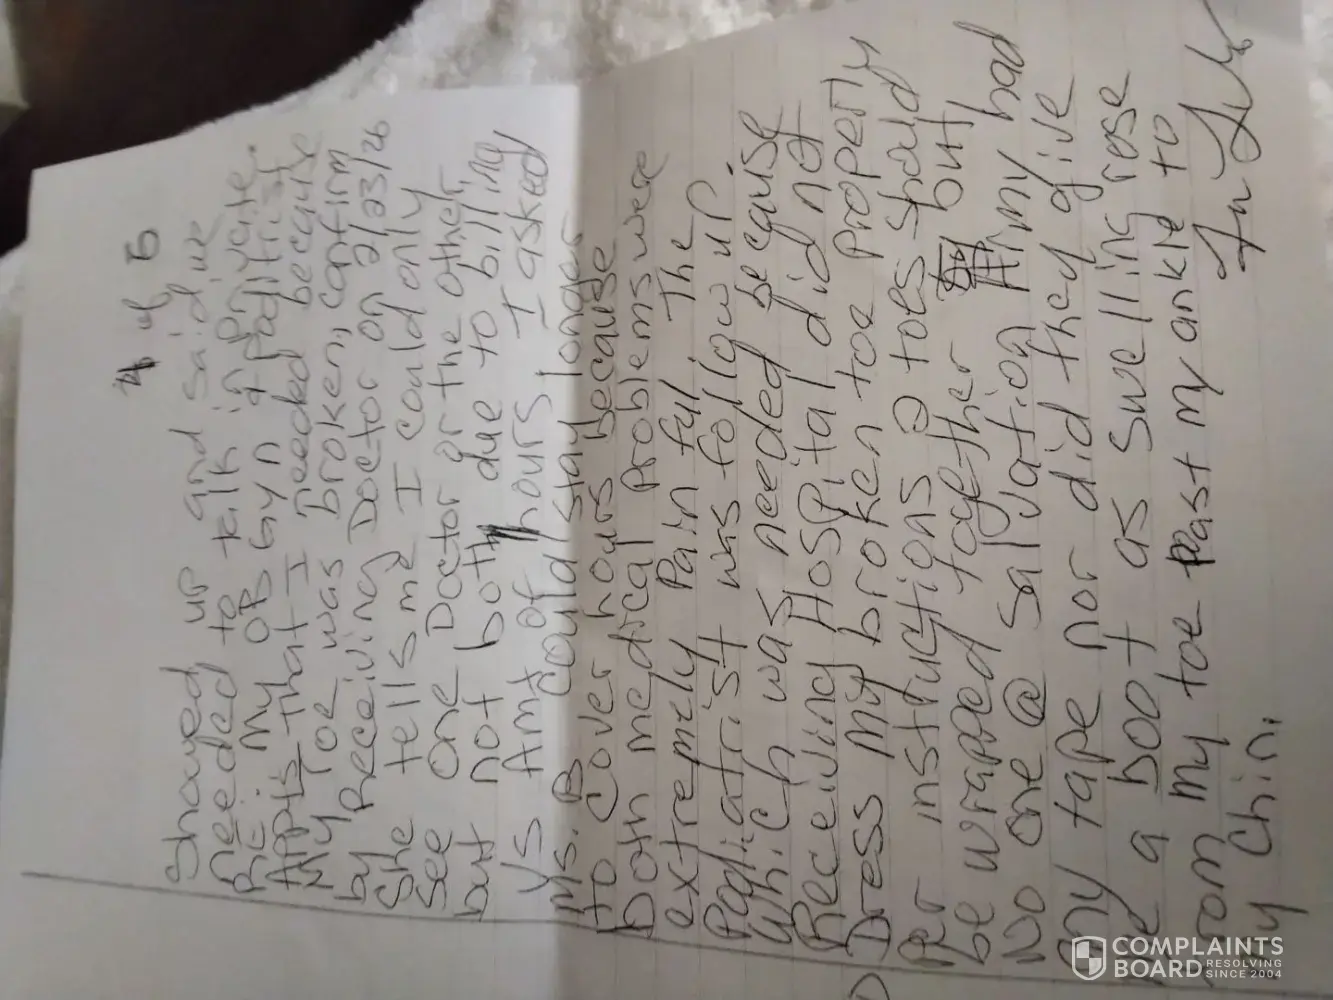 4 of 5
Showed up and said we
needed to talk in private
RE: My OB Gyn & podiatrist
Appts that I needed because
My Toe was broken, confirm
by Receiving Doctor on 2/23/26
She tells me I could only
see one Doctor or the other
but not both due to billing
vs Amt of hours, I asked
Ms. B could stay longer
to cover hours because
both medical problems were
extremely painful. The
Podiatrist was follow up
which was needed because
Receiving Hospital did not
Dress My broken toe properly
Per instructions 2 toes should
be wrapped together but
No one @ Salvation Army had
any tape nor did they give
me a boot as swelling rose
from my toe past my ankle to
my Chin.
COMPLAINTS
BOARD RESOLVING
SINCE 2004